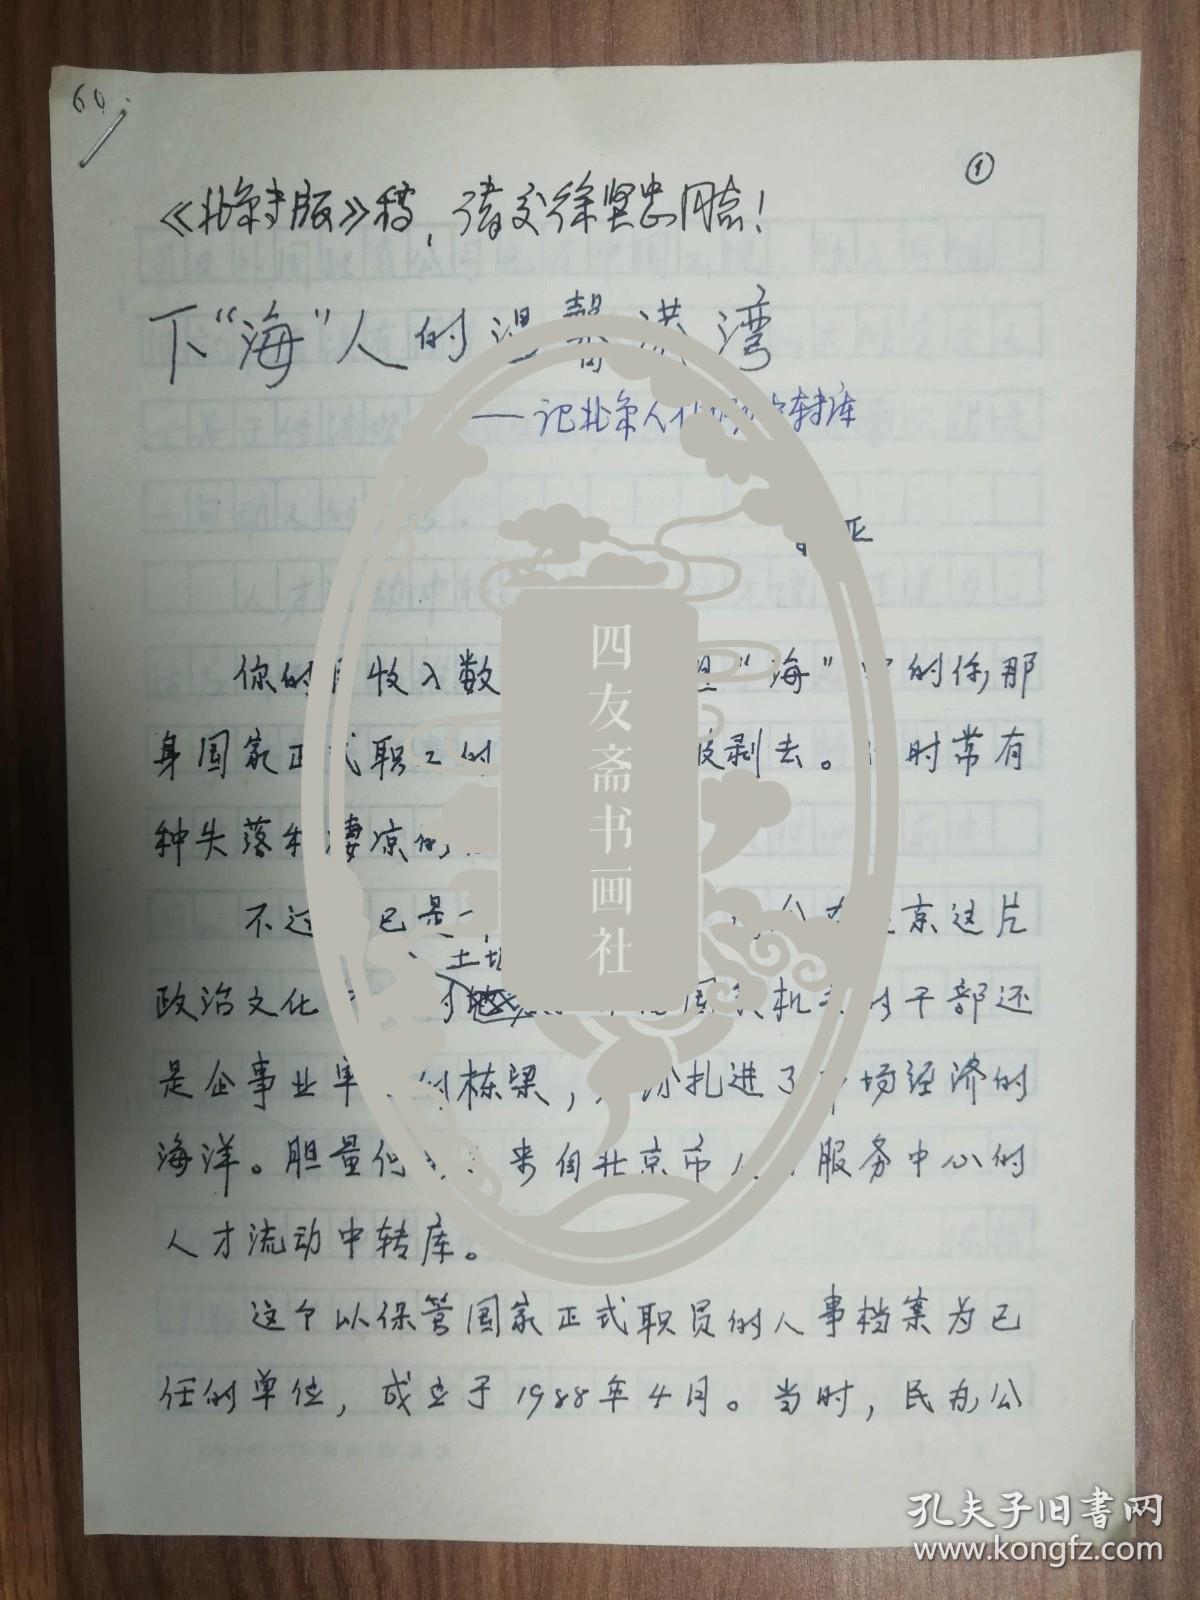 60
①
《北京专版》稿，请交徐坚忠同志！
下“海”人的温馨港湾
——记北京人才 转库
亚
你的月收入数 “海”中的你，那
身国家正式职工的 被剥去。 时常有
种失落和凄凉的
不过 已是 京这片
土地
政治文化 国家机关的干部还
是企事业单位的栋梁， 扎进了市场经济的
海洋。胆量何 来自北京市人才服务中心的
人才流动中转库。
这个以保管国家正式职员的人事档案为己
任的单位，成立于1988年4月。当时，民办公
四友斋书画社
孔夫子旧书网
www.kongfz.com